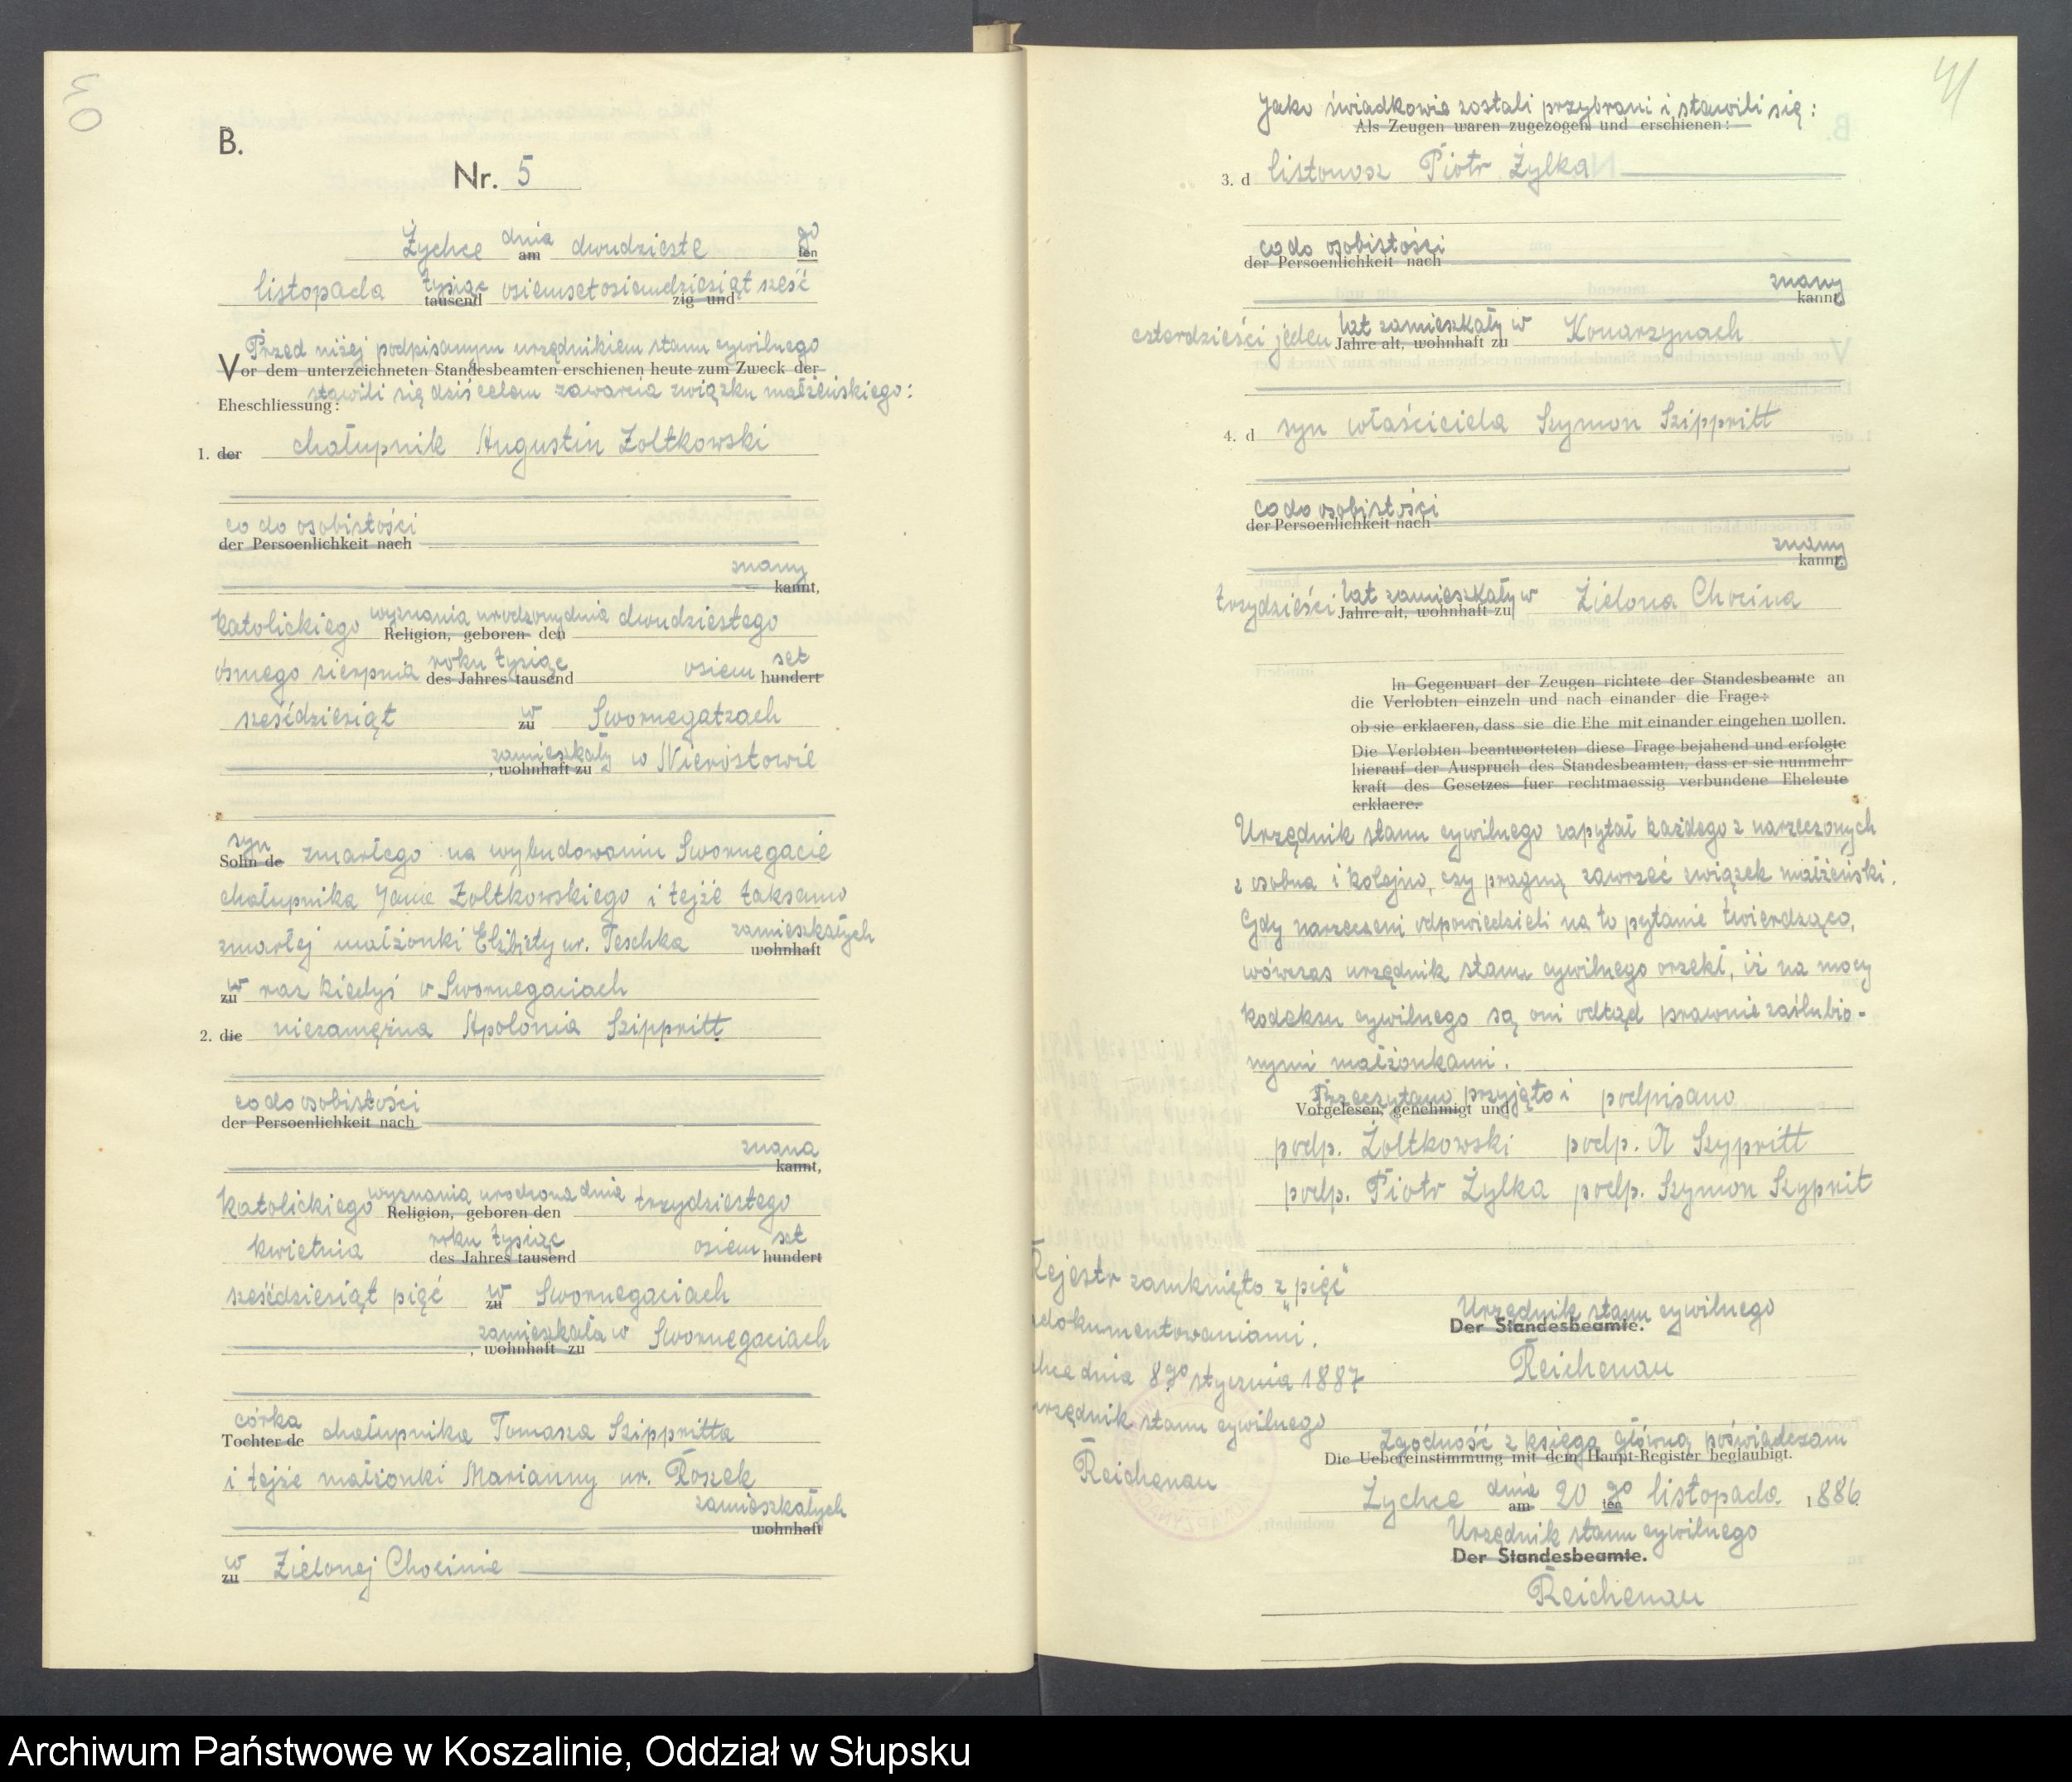 B.
Nr. 5
Żychce dnia am dwudzieste go ten
listopada tysiąc tausend osiemsetosiemdziesiąt sześć zig und
Przed niżej podpisanym urzędnikiem stanu cywilnego
Vor dem unterzeichneten Standesbeamten erschienen heute zum Zweck der
stawili się dziś celem zawarcia związku małżeńskiego:
Eheschliessung:
1. der chałupnik Augustin Zoltkowski
co do osobistości
der Persoenlichkeit nach
znany
kannt,
katolickiego wyznania urodzony dnia dwudziestego
Religion, geboren den
ósmego sierpnia roku tysiąc osiem set
des Jahres tausend hundert
sześćdziesiąt w zu Swornegatzach
zamieszkały w Nierostowie
, wohnhaft zu
syn
Sohn de zmarłego na wybudowaniu Swornegacie
chałupnika Jana Zoltkowskiego i tejże taksamo
zmarłej małżonki Elżbiety ur. Teschka zamieszkałych
wohnhaft
w zu raz kiedyś w Swornegaciach
2. die niezamężna Apolonia Szippritt
co do osobistości
der Persoenlichkeit nach
znana
kannt,
katolickiego wyznania urodzona dnia trzydziestego
Religion, geboren den
kwietnia roku tysiąc osiem set
des Jahres tausend hundert
sześćdziesiąt pięć w zu Swornegaciach
zamieszkała w Swornegaciach
, wohnhaft zu
córka
Tochter de chałupnika Tomasza Szippritta
i tejże małżonki Marianny ur. Roszek
zamieszkałych
wohnhaft
w zu Zielonej Chocinie
41
Jako świadkowie zostali przybrani i stawili się:
Als Zeugen waren zugezogen und erschienen:
3. d listonosz Piotr Żylka
co do osobistości
der Persoenlichkeit nach
znany
kannt,
czterdzieści jeden lat zamieszkały w Konarzynach
Jahre alt, wohnhaft zu
4. d syn właściciela Szymon Szippritt
co do osobistości
der Persoenlichkeit nach
znany
kannt,
trzydzieści lat zamieszkały w Zielona Chocina
Jahre alt, wohnhaft zu
In Gegenwart der Zeugen richtete der Standesbeamte an
die Verlobten einzeln und nach einander die Frage:
ob sie erklaeren, dass sie die Ehe mit einander eingehen wollen.
Die Verlobten beantworteten diese Frage bejahend und erfolgte
hierauf der Auspruch des Standesbeamten, dass er sie nunmehr
kraft des Gesetzes fuer rechtmaessig verbundene Eheleute
erklaere.
Urzędnik stanu cywilnego zapytał każdego z narzeczonych
z osobna i kolejno, czy pragną zawrzeć związek małżeński.
Gdy narzeczeni odpowiedzieli na to pytanie twierdząco,
wówczas urzędnik stanu cywilnego orzekł, iż na mocy
kodeksu cywilnego są oni odtąd prawnie zaślubio-
nymi małżonkami.
Przeczytano przyjęto i podpisano
Vorgelesen, genehmigt und
podp. Żoltkowski podp. A Szypritt
podp. Piotr Żylka podp. Szymon Szyprit
Rejestr zamknięto z "pięć"
dokumentowaniami.
dnia 8go stycznia 1887
urzędnik stanu cywilnego
Reichenau
Urzędnik stanu cywilnego
Der Standesbeamte.
Reichenau
Zgodność z księgą główną poświadczam
Die Uebereinstimmung mit dem Haupt-Register beglaubigt.
Żychce dnia am 20 go ten listopada 1886
Urzędnik stanu cywilnego
Der Standesbeamte.
Reichenau
Archiwum Państwowe w Koszalinie, Oddział w Słupsku